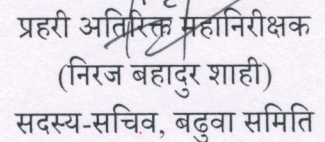 प्रहरी अतिरिक्त महानिरीक्षक
(निरज बहादुर शाही)
सदस्य-सचिव, बढुवा समिति